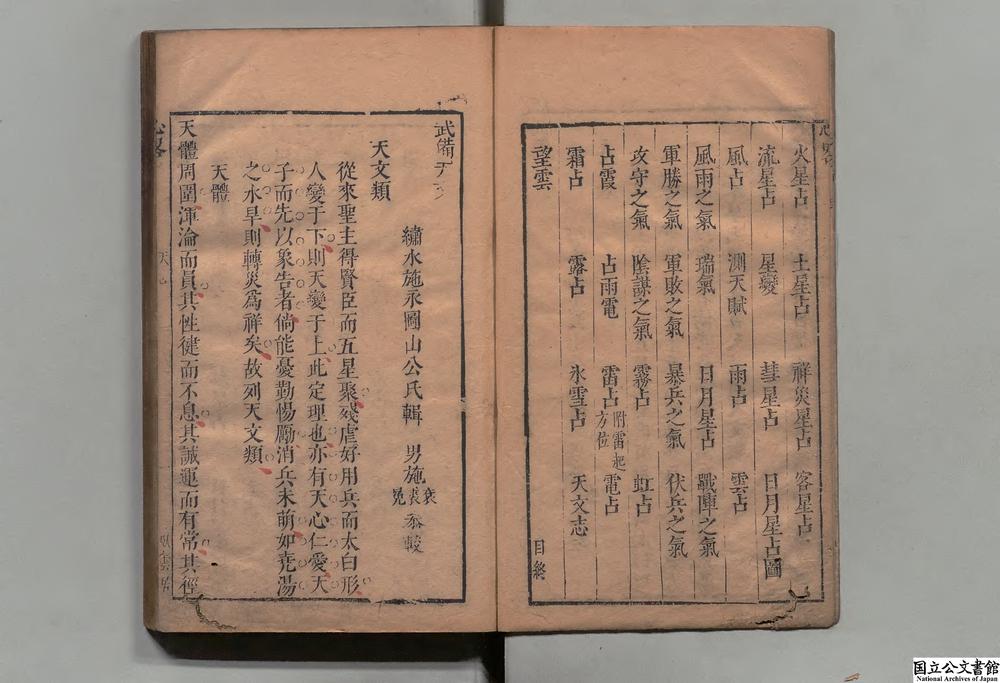 火星占 土星占 祥災星占 客星占
流星占 星變 彗星占 日月星占圖
風占 測天賦 雨占 雲占
風雨之氣 瑞氣 日月星占 戰陣之氣
軍勝之氣 軍敗之氣 暴兵之氣 伏兵之氣
攻守之氣 陰謀之氣 霧占 虹占
占霞 占雨電 雷占 附雷起方位 電占
霜占 露占 氷雪占 天文志
望雲
目終
武備天
繡水施永圖山公氏輯 男施 袞 裘 冕 叅較
天文類
從來聖主得賢臣而五星聚殘虐好用兵而太白形
人變于下則天變于上此定理也亦有天心仁愛天
子而先以象告者倘能憂勤惕勵消兵未萌如尭湯
之水旱則轉災爲祥矣故列天文類
天體
天體周圍渾淪而員其性健而不息其誠運而有常其徑
国立公文書館
National Archives of Japan